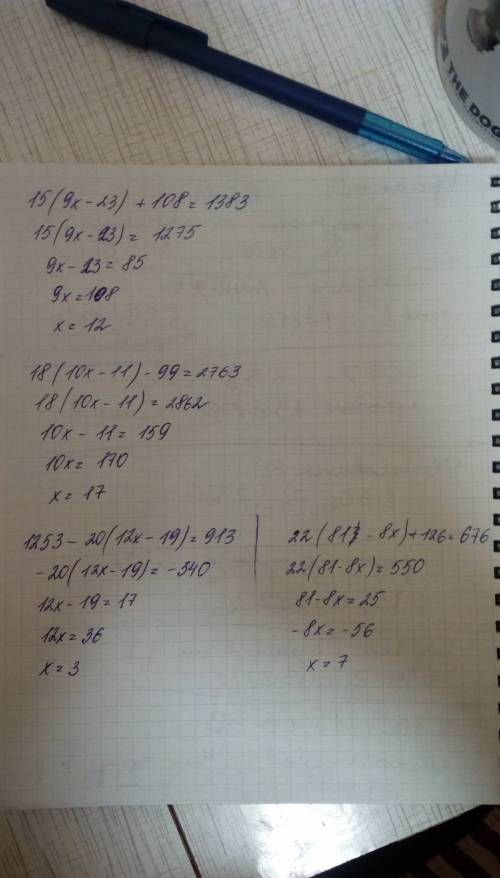 THE DOG
15(9x-23)+108=1383
15(9x-23)=1275
9x-23=85
9x=108
x=12
18(10x-11)-99=2763
18(10x-11)=2862
10x-11=159
10x=170
x=17
1253-20(12x-19)=913
-20(12x-19)=-340
12x-19=17
12x=36
x=3
22(81-8x)+126=676
22(81-8x)=550
81-8x=25
-8x=-56
x=7